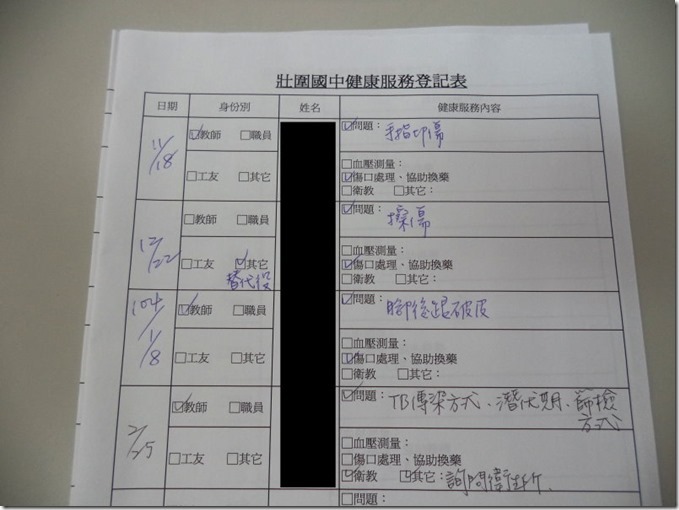 壯圍國中健康服務登記表
日期 身份別 姓名 健康服務內容
11/18 ☑教師 □職員 ☑問題：手指切傷
□工友 □其它 □血壓測量：
☑傷口處理、協助換藥
□衛教 □其它：
12/22 □教師 □職員 ☑問題：擦傷
□工友 ☑其它 □血壓測量：
替代役 ☑傷口處理、協助換藥
□衛教 □其它：
104/1/8 ☑教師 □職員 ☑問題：腳後跟破皮
□工友 □其它 □血壓測量：
☑傷口處理、協助換藥
□衛教 □其它：
2/25 ☑教師 □職員 ☑問題：TB傳染方式、潛伏期、篩檢
方式
□工友 □其它 □血壓測量：
□傷口處理、協助換藥
☑衛教 ☑其它：詢問衛生所、
□問題：